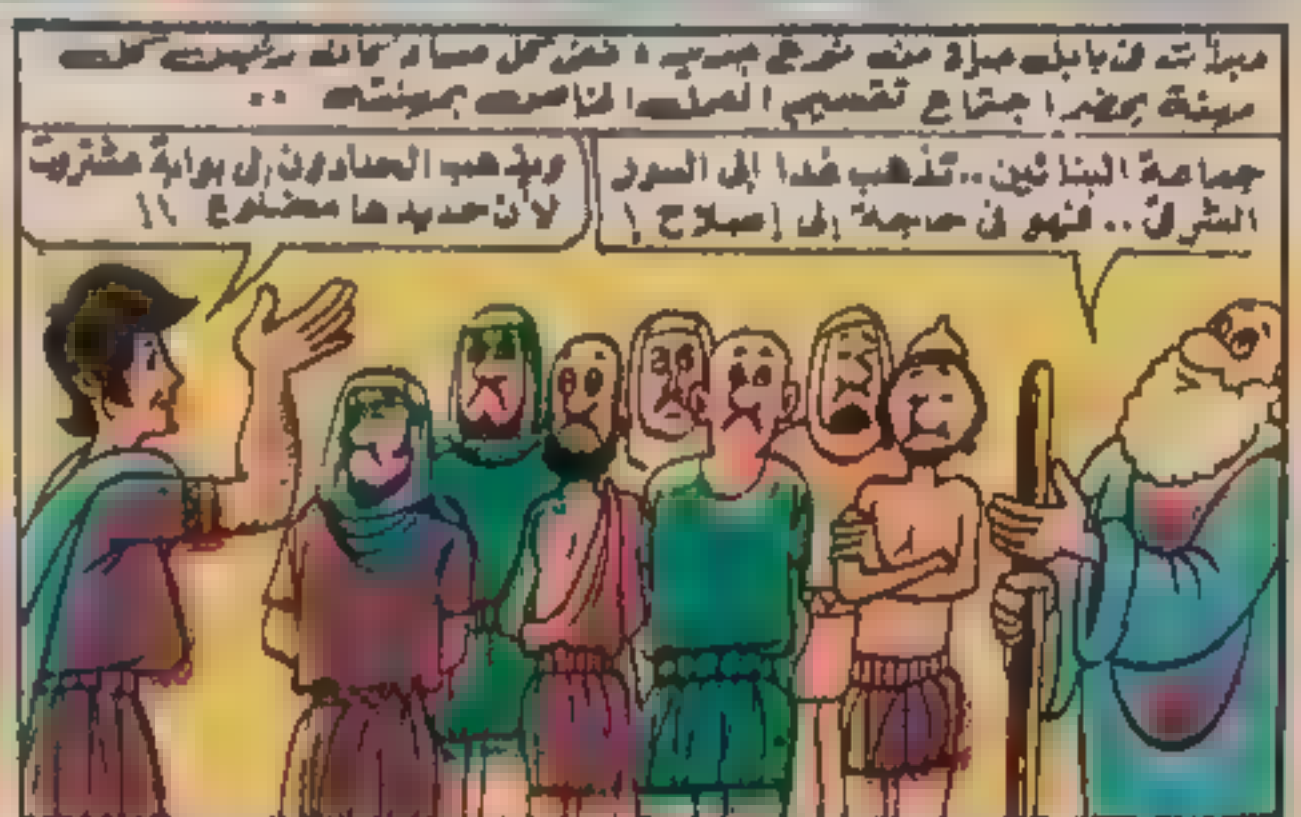 وبدأت في بابل حياة من نوع جديد ، ففي كل مساء كان رئيس كل
مهنة يحضر اجتماع تقسيم العمل الخاص بمهنته ..
جماعة البنائين .. تذهب غدا إلى السور
الشرقى .. فهو فى حاجة إلى إصلاح !
ويذهب الحدادون إلى بوابة عشتروت
لأن حديدها مخلوع !!